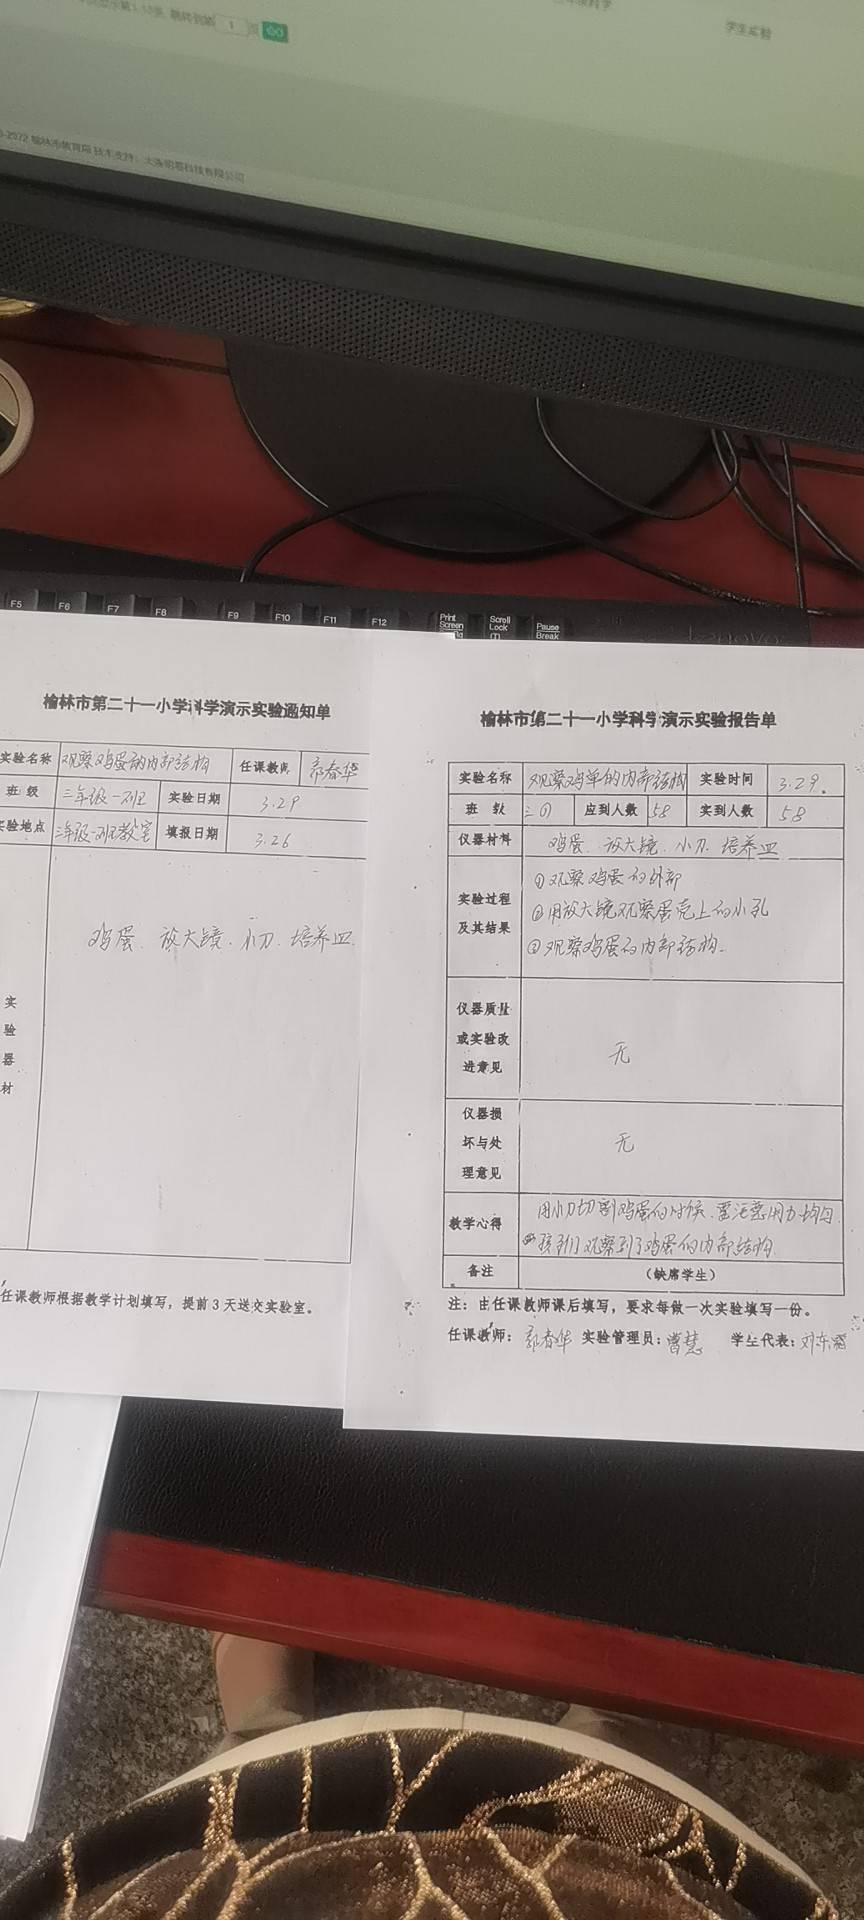 1
GO
学生实验
技术支持：大连明石科技有限公司
F5 F6 F7 F8 F9 F10 F11 F12
Print Screen
Scroll Lock
Pause Break
lenovo
榆林市第二十一小学科学演示实验通知单
实验名称 观察鸡蛋的内部结构 任课教师 郭春华
班级 三年级一班 实验日期 3.29
实验地点 三年级一班教室 填报日期 3.26
实验器材
鸡蛋、放大镜、小刀、培养皿
任课教师根据教学计划填写，提前3天送交实验室。
榆林市第二十一小学科学演示实验报告单
实验名称 观察鸡蛋的内部结构 实验时间 3.29.
班级 三(1) 应到人数 58 实到人数 58
仪器材料 鸡蛋、放大镜、小刀、培养皿
实验过程及其结果
①观察鸡蛋的外部
②用放大镜观察蛋壳上的小孔
③观察鸡蛋的内部结构.
仪器质量或实验改进意见 无
仪器损坏与处理意见 无
教学心得 用小刀切割鸡蛋的时候、要注意用力均匀.
孩子们观察到了鸡蛋的内部结构.
备注 （缺席学生）
注：由任课教师课后填写，要求每做一次实验填写一份。
任课教师：郭春华 实验管理员：曹慧 学生代表：刘东